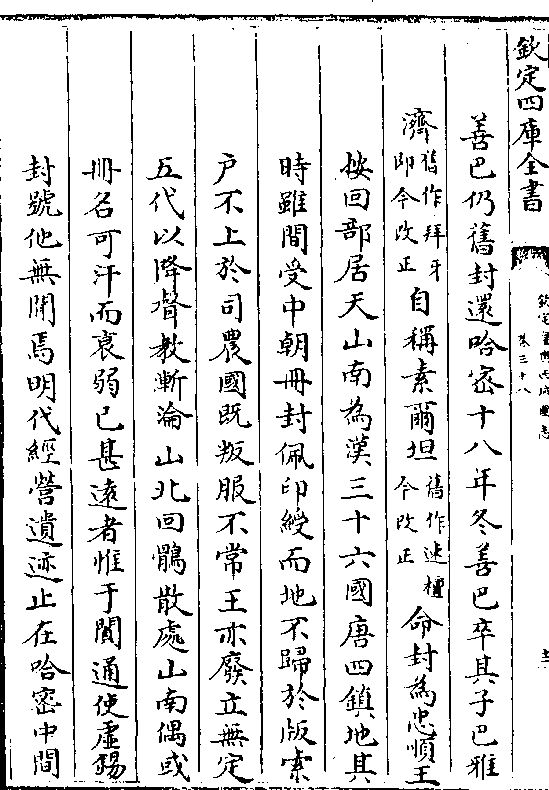 欽定四庫全書
欽定皇輿西域圖志
卷三十八
善巴仍舊封還哈密十八年冬善巴卒其子巴雅
濟舊作拜牙即今改正自稱素爾坦舊作速檀今改正命封為忠順王
按回部居天山南為漢三十六國唐四鎮地其
時雖間受中朝冊封佩印綬而地不歸於版索
户不上於司農國既叛服不常王亦廢立無定
五代以降聲教漸淪山北回鶻散處山南偶或
冊名可汗而衰弱已甚遠者惟于闐通使虛錫
封號他無聞焉明代經營遺迹止在哈密中間